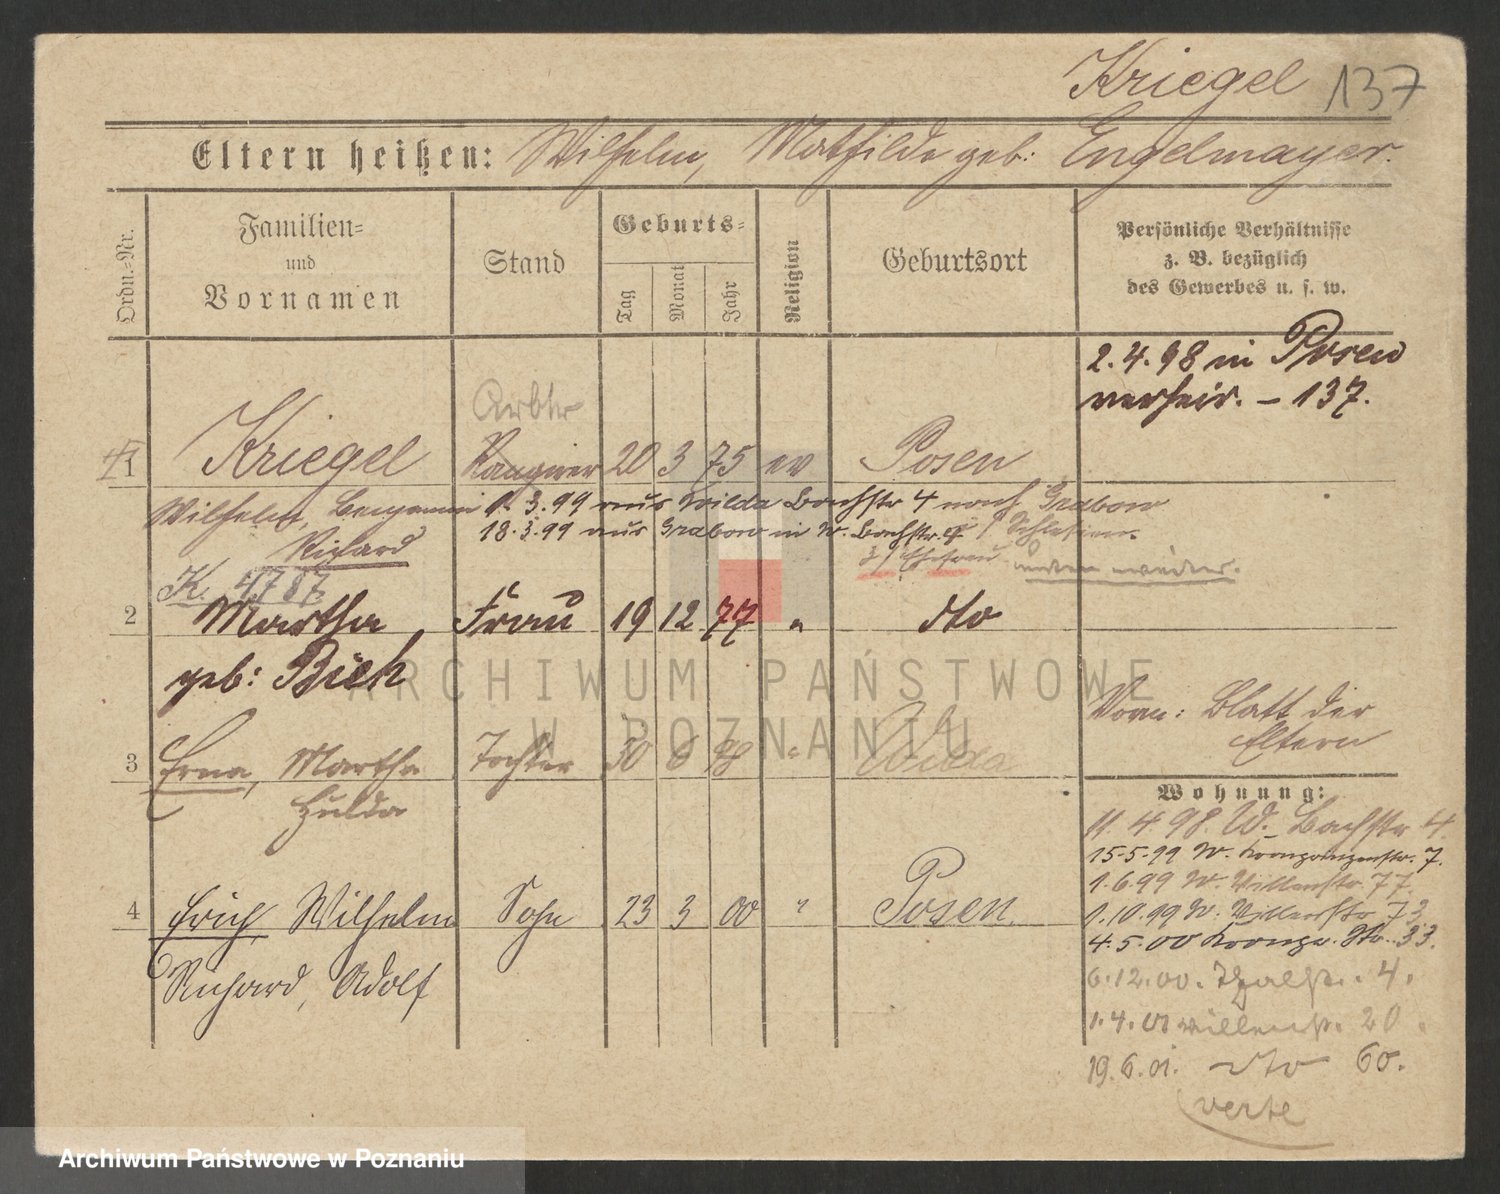 Kriegel 137
Eltern heißen: Wilhelm, Mathilde geb: Engelmayer.
Ordn.-Nr.
Familien-
und
Vornamen
Stand
Geburts-
Tag
Monat
Jahr
Religion
Geburtsort
Persönliche Verhältnisse
z. B. bezüglich
des Gewerbes u. s. w.
2.4.98 in Posen
verheir. – 137.
Arbtr
1 Kriegel 20 3 75 ev Posen
Wilhelm, Benjamin 1.3.99 aus Wilda Bachstr 4 nach Grabow
Richard
18.3.99 aus Grabow in W. Bachstr. 4 / Schlesien.
K. 4787
2 Martha Frau 19 12 77 " dto
geb: Biek
Vorm: Blatt der
Eltern
3 Erna, Martha Tochter 30 6 98 " Wilda
Hulda
Wohnung:
11.4.98. W. Bachstr 4.
15.5.99 W. Kronprinzenstr. 7.
1.6.99 W. Villenstr. 77.
1.10.99 W. Villenstr 73
4 Erich, Wilhelm Sohn 23 3 00 " Posen
4.5.00 Kronpr. Str. 33.
Richard, Adolf
6.12.00. Thalstr. 4.
1.4.01 Villenstr. 20.
19.6.01. dto 60.
verte
ARCHIWUM PAŃSTWOWE
W POZNANIU
Archiwum Państwowe w Poznaniu